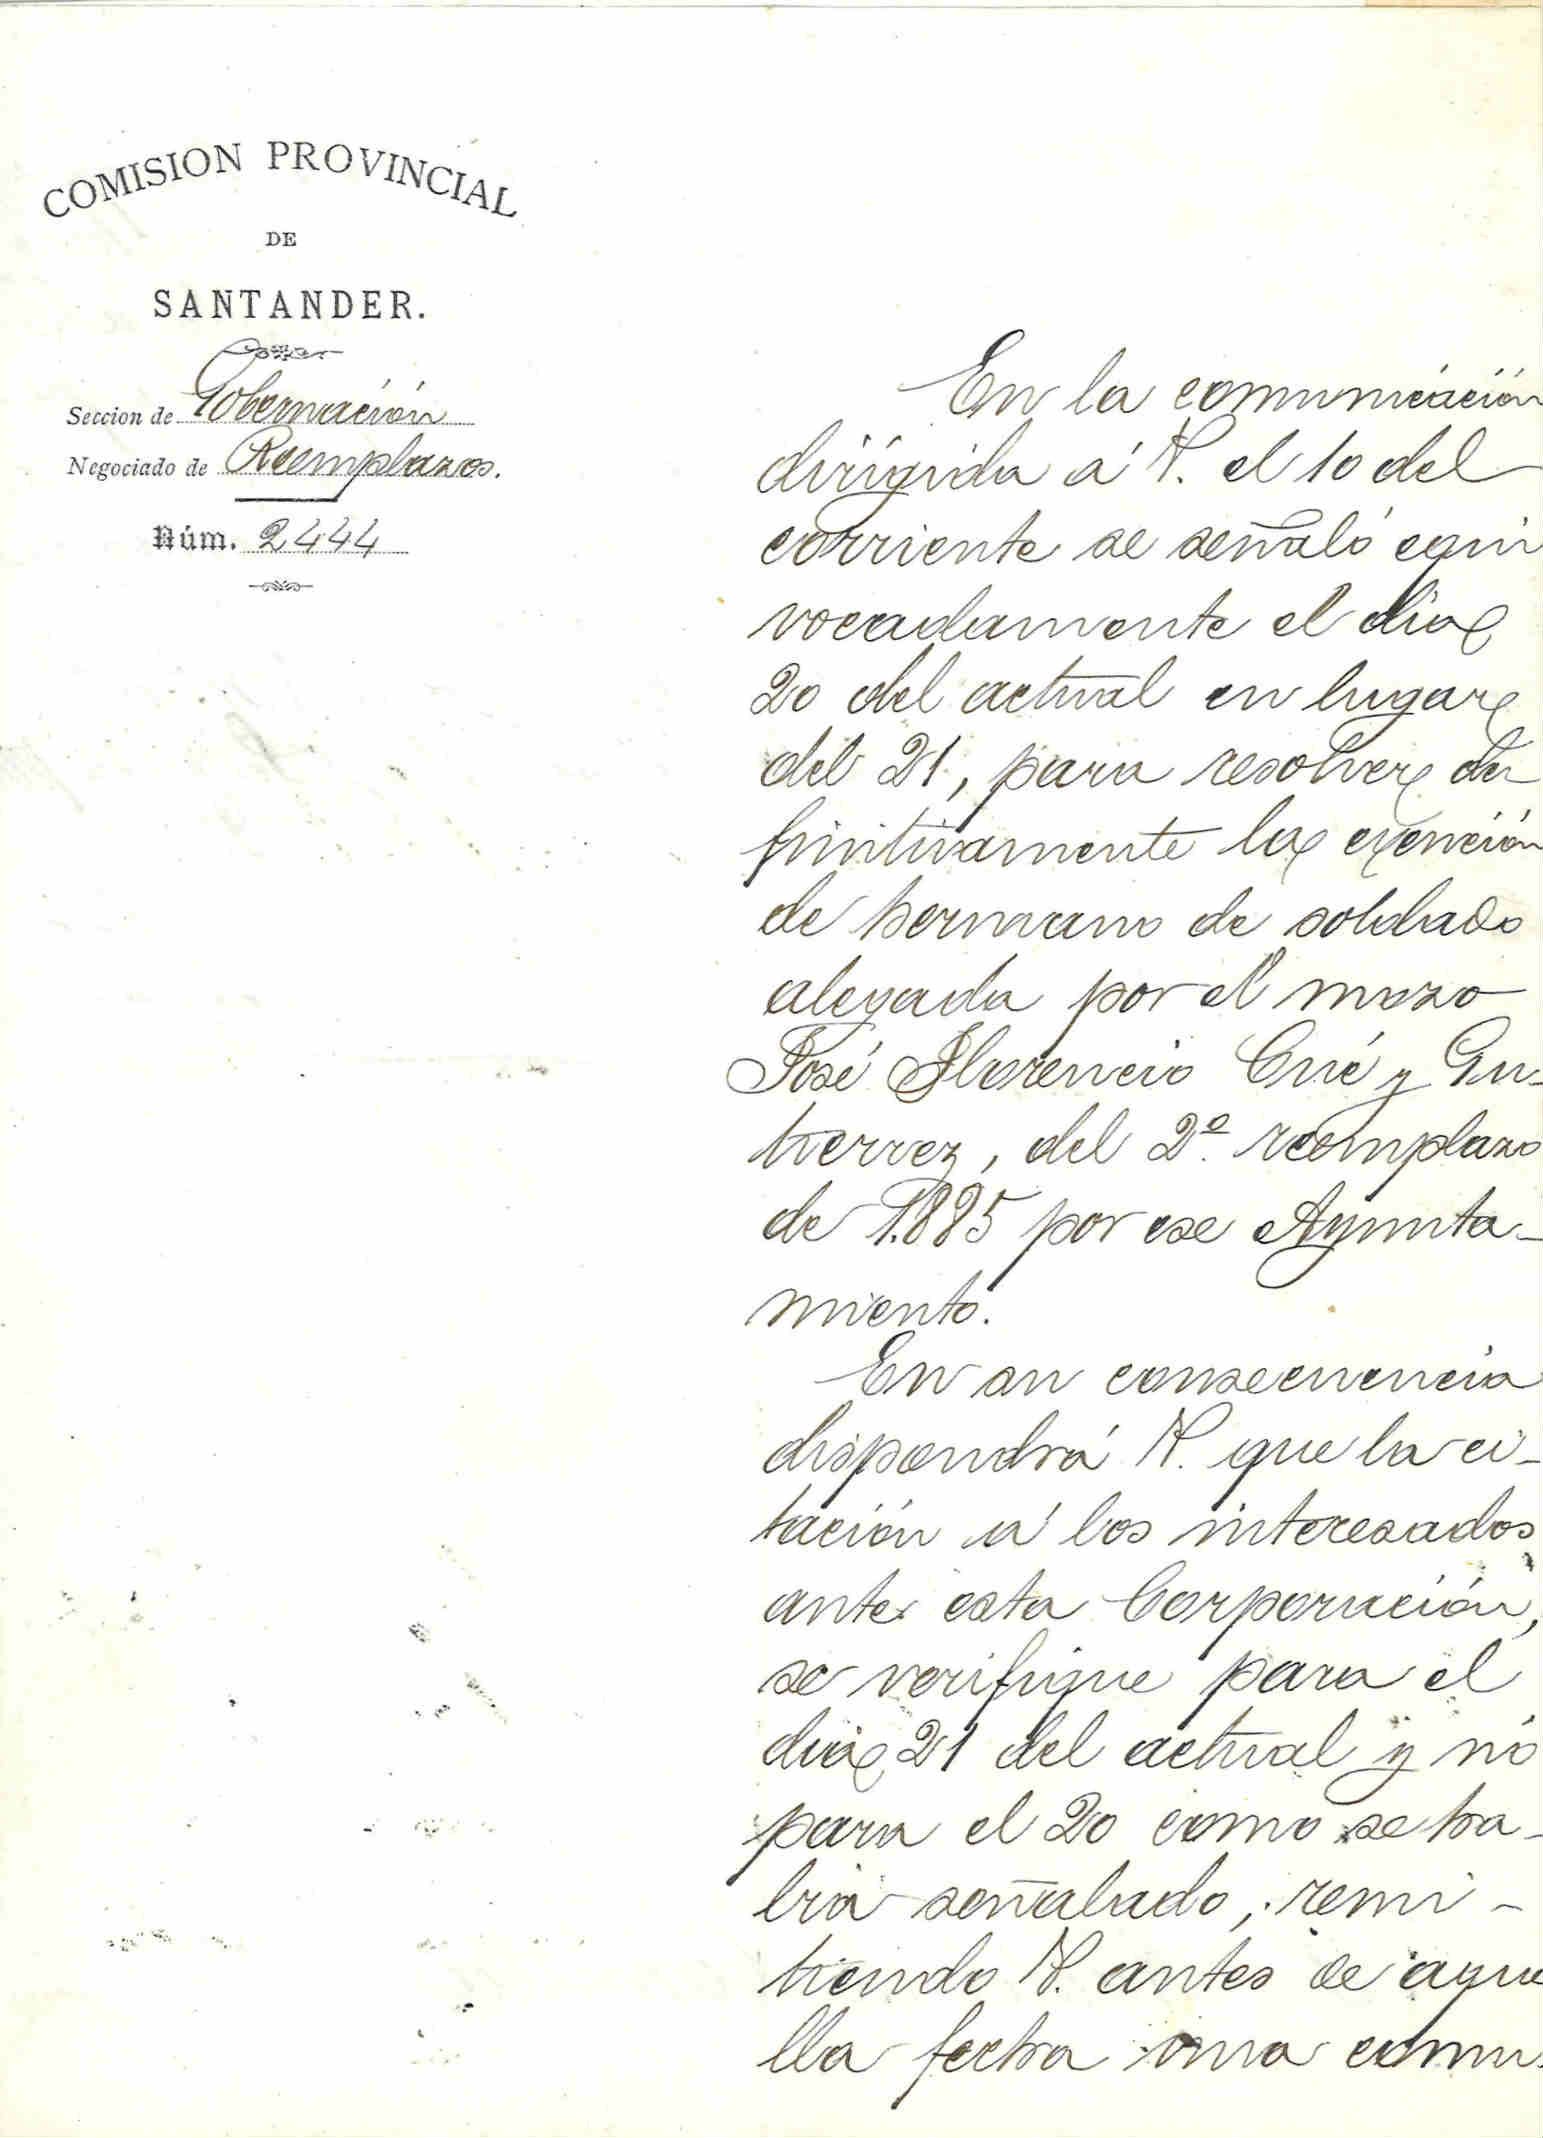 COMISION PROVINCIAL
DE
SANTANDER.
Seccion de Gobernación
Negociado de Reemplazos.
Núm. 2444
En la comunicación
dirigida á V. el 10 del
corriente se señaló equi
vocadamente el dia
20 del actual en lugar
del 21, para resolver de
finitivamente la exención
de hermano de soldado
alegada por el mozo
José Florencio Cué y Gu-
tierrez, del 2º reemplazo
de 1.885 por ese Ayunta-
miento.
En su consecuencia
dispondrá V. que la ci-
tación á los interesados
ante esta Corporación,
se verifique para el
dia 21 del actual y nó
para el 20 como se ha-
bia señalado, remi-
tiendo V. antes de aque
lla fecha una comu